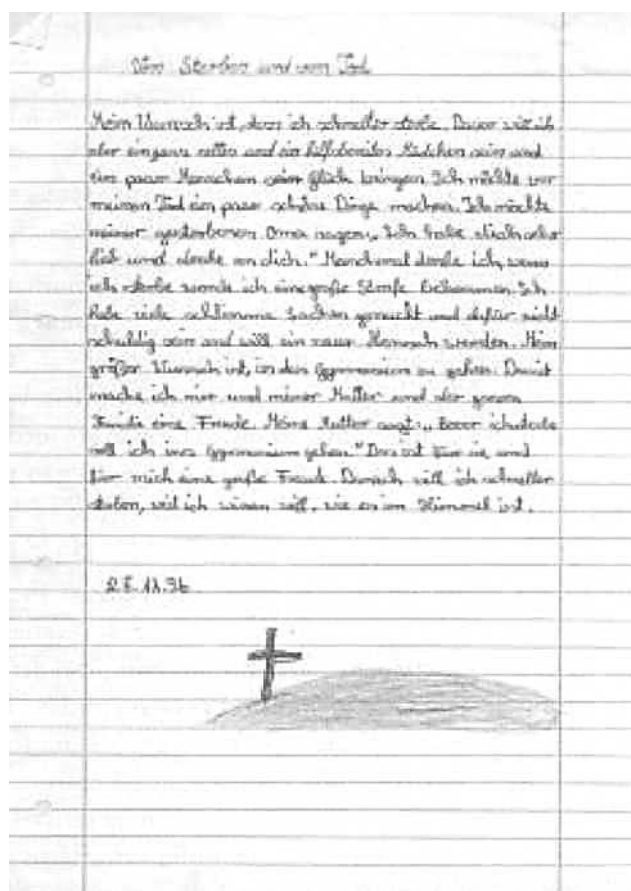 Vom Sterben und vom Tod
Mein Wunsch ist, dass ich schneller sterbe. Davor will ich
aber ein ganz nettes und ein hilfsbereites Mädchen sein und
ein paar Menschen sein Glück bringen. Ich möchte vor
meinen Tod ein paar schöne Dinge machen. Ich möchte
meiner gestorbenen Oma sagen: „Ich habe dich sehr
lieb und denke an dich." Manchmal denke ich, wenn
ich sterbe werde ich eine große Strafe bekommen. Ich
habe viele schlimme Sachen gemacht und dafür nicht
schuldig sein und will ein neuer Mensch werden. Mein
größer Wunsch ist, in den Gymnasium zu gehen. Damit
mache ich mir und meiner Mutter und der ganzen
Familie eine Freude. Meine Mutter sagt: „Bevor ich sterbe
soll ich ins Gymnasium gehen." Das ist für sie und
für mich eine große Freude. Danach will ich schneller
sterben, weil ich wissen will, wie es im Himmel ist.